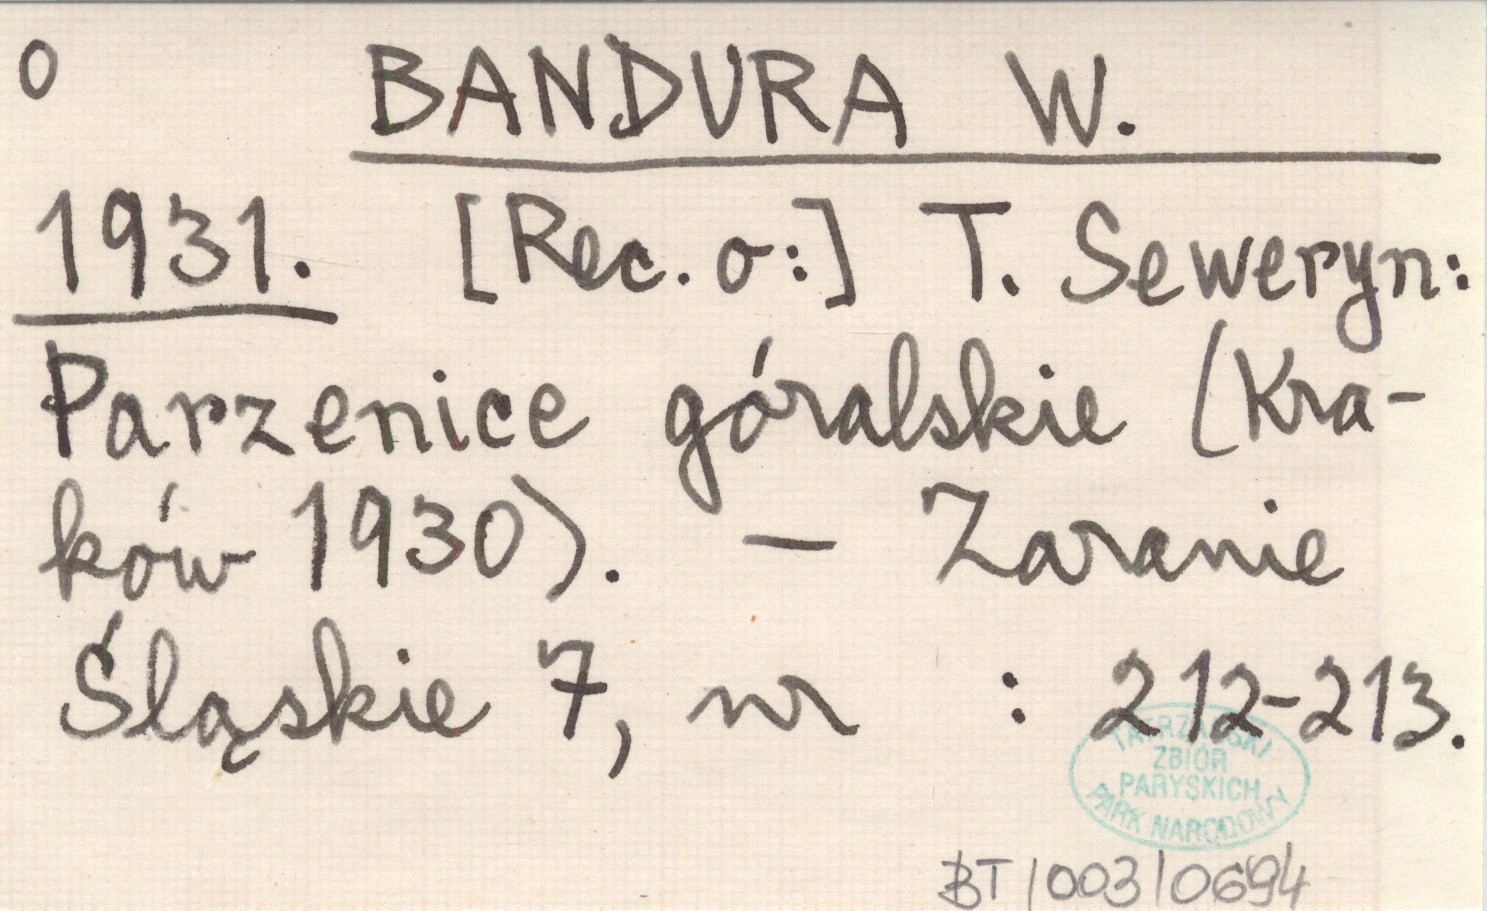 O BANDURA W.
1931. [Rec. o:] T. Seweryn:
Parzenice góralskie (Kra-
ków 1930). — Zaranie
Śląskie 7, nr : 212-213.
TATRZAŃSKI
ZBIÓR
PARYSKICH
PARK NARODOWY
BT/003/0694